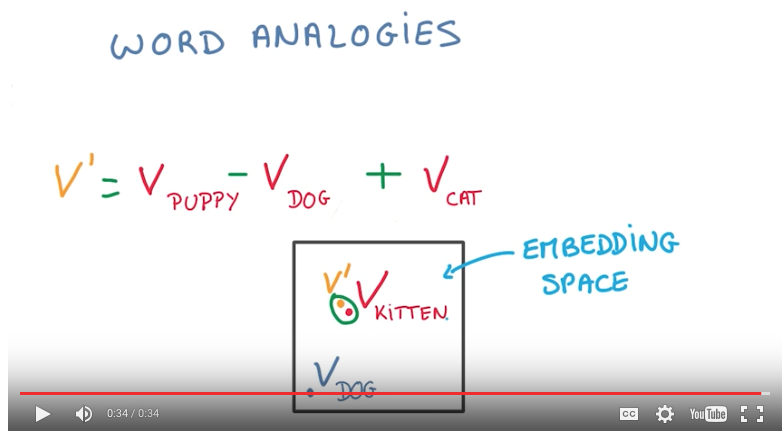 WORD ANALOGIES
V' = V PUPPY - V DOG + V CAT
EMBEDDING
SPACE
V' V KITTEN
V DOG
0:34 / 0:34 CC YouTube